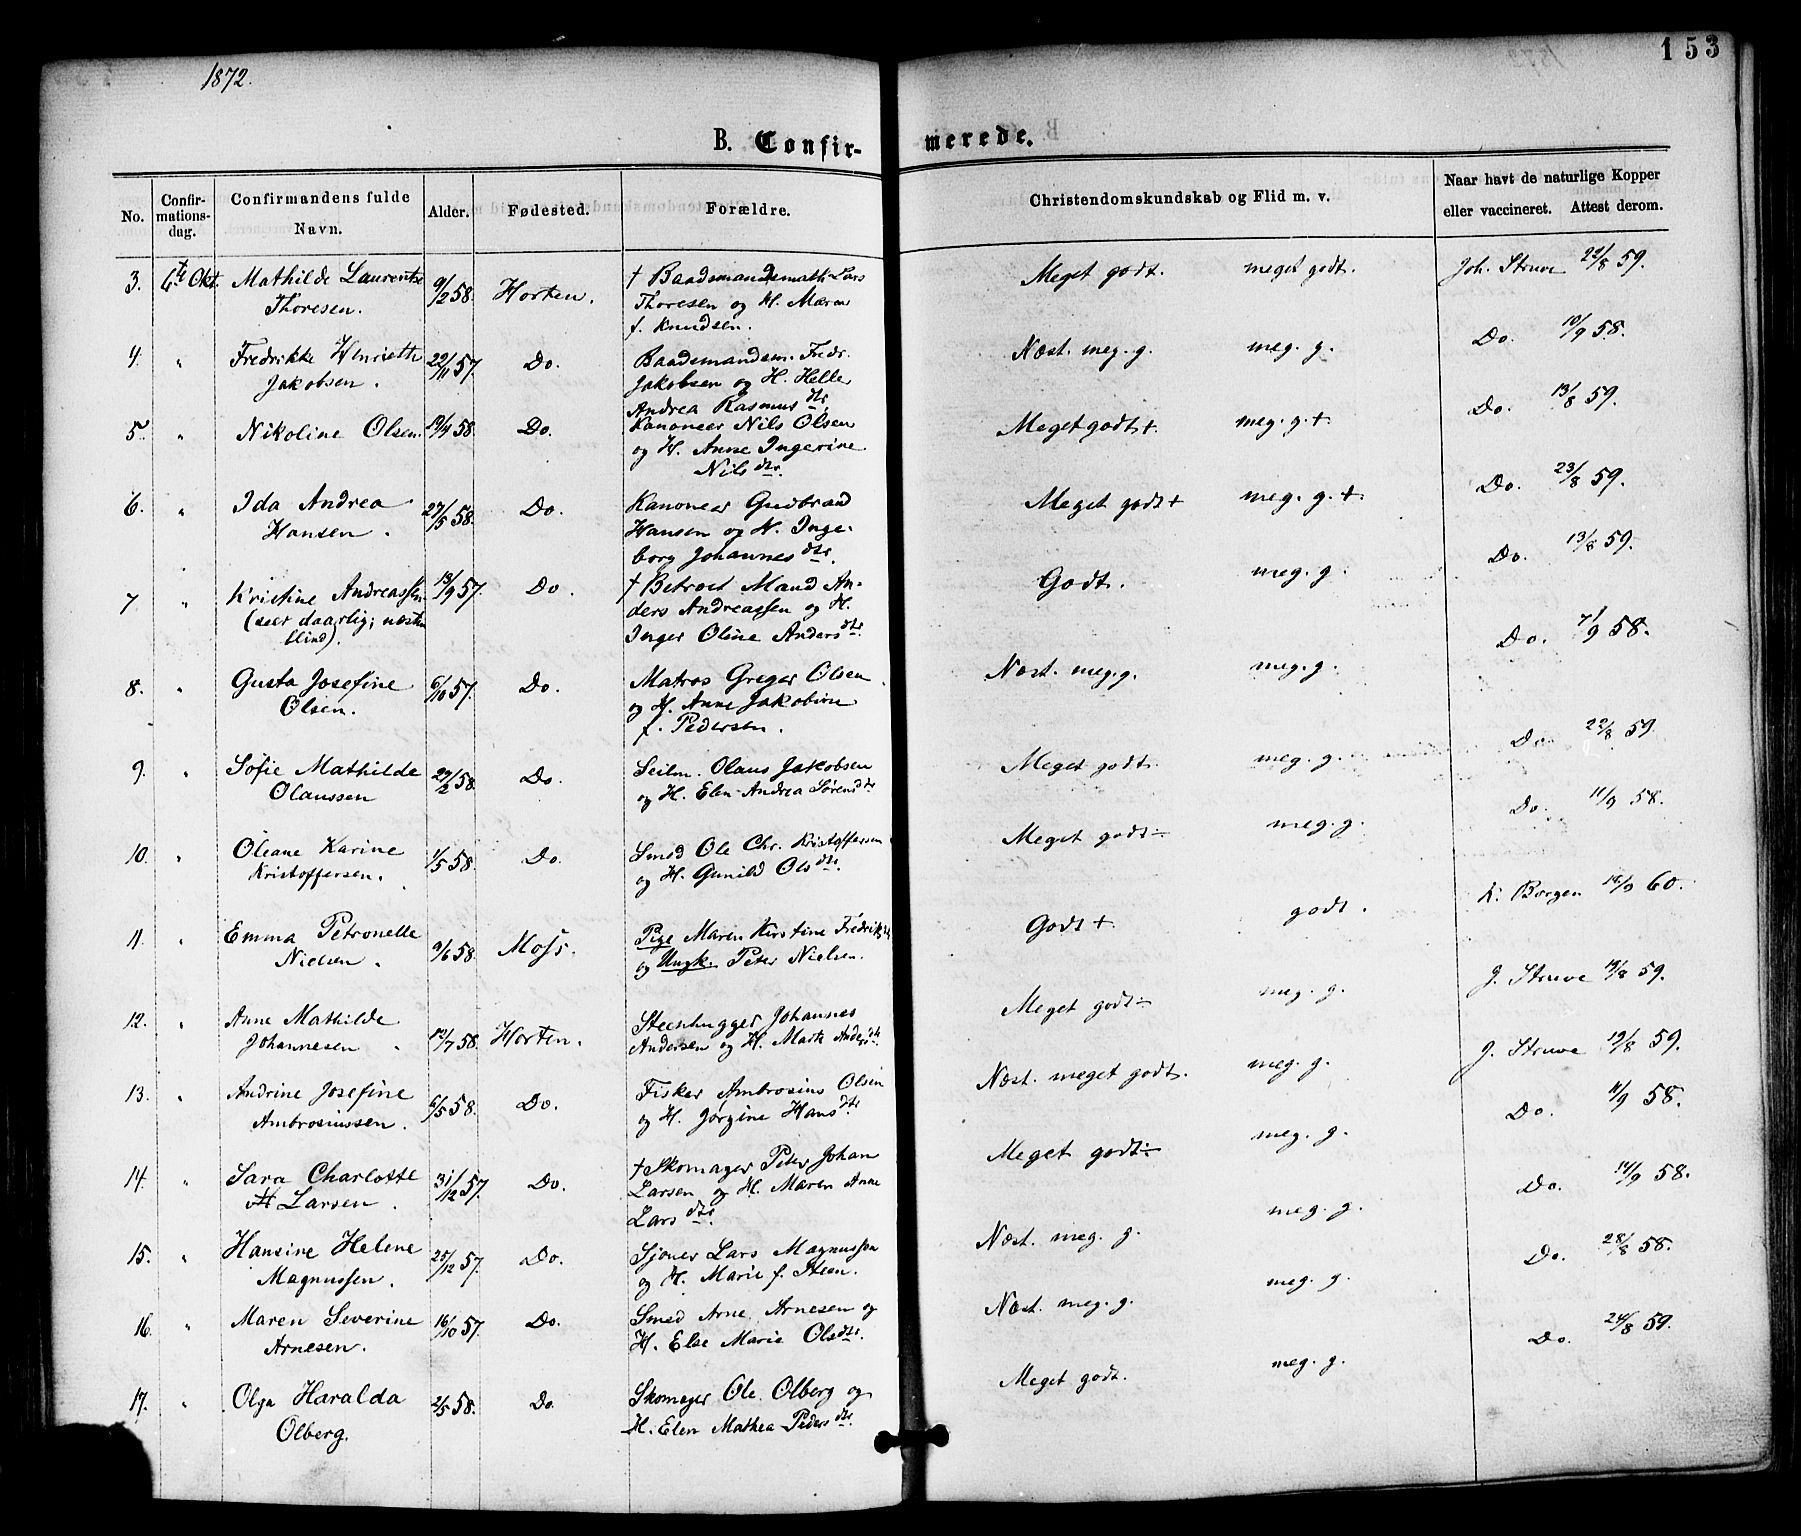 1872.
153
B. Confir-merede.
No.
Confir-
mations-
dag.
Confirmandens fulde
Navn.
Alder.
Fødested.
Forældre.
Christendomskundskab og Flid m. v.
Naar havt de naturlige Kopper
eller vaccineret. Attest derom.
3. 6te Okt. Mathilde Laurentse 9/2 58. Horten. † Baadsmandsmath Lars Meget godt. meget godt. Joh. Struve 22/8 59.
Thoresen. Thoresen og H. Maren
f. Knudsen.
4. " Fredrikke Henriette 29/11 57. Do. Baadsmandsm. Fredr. Næst. meg. g. meg. g. Do. 10/9 58.
Jakobsen. Jakobsen og H. Helle
Andrea Rasmusdtr.
5. " Nikoline Olsen. 58. Do. Kanoneer Nils Olsen Meget godt + meg. g. + Do. 13/8 59.
og H. Anne Ingerine
Nilsdtr.
6. " Ida Andrea 27/5 58. Do. Kanoneer Gudbrand Meget godt + meg. g. + Do. 23/8 59.
Hansen. Hansen og H. Inge-
borg Johannesdtr.
7 " Kristine Andreassen 13/9 57. Do. † Betroet Mand An- Godt. meg. g. Do. 13/8 59.
(seer daarlig; næsten ders Andreassen og H.
blind). Inger Oline Andersdtr.
8. " Gusta Josefine 6/10 57. Do. Matros Greger Olsen Næst. meg. g. meg. g. Do. 7/9 58.
Olsen. og H. Anne Jakobine
f. Pedersen.
9. " Sofie Mathilde 58. Do. Seilm. Olaus Jakobsen Meget godt. meg. g. Do. 22/8 59.
Olaussen og H. Elen Andrea Sørensdtr
10. " Oleane Karine 1/5 58. Do. Smed Ole Chr. Kristoffersen Meget godt ÷ meg. g. Do. 11/9 58.
Kristoffersen. og H. Gunild Olsdtr.
11. " Emma Petronelle 9/6 58. Moss. Pige Maren Kirstine Fredriksdtr Godt + godt. K. Borgen 18/9 60.
Nielsen. og Ungk. Peter Nielsen.
12. " Anne Mathilde 12/7 58. Horten. Steenhugger Johannes Meget godt ÷ meg. g. J. Struve 19/8 59.
Johannesen. Andersen og H. Marte Andersdtr.
13. " Andrine Josefine 6/5 58. Do. Fisker Ambrosius Olsen Næst. meget godt. meg. g. J. Struve 19/8 59.
Ambrosiussen. og H. Jørgine Hansdtr
14. " Sara Charlotte 31/12 57. Do. † Skomager Peter Johan Meget godt ÷ meg. g. Do. 11/9 58.
Larsen. Larsen og H. Maren Anne
Larsdtr.
15. " Hansine Helene 25/12 57. Do. Sjøner Lars Magnussen Næst. meg. g. meg. g. Do. 14/9 58.
Magnussen. og H. Marie f. Steen.
16. " Maren Severine 16/10 57. Do. Smed Arne Arnesen og Næst. meg. g. meg. g. Do. 28/8 58.
Arnesen. H. Else Marie Olsdtr.
17. " Olga Haralda 2/5 58. Do. Skomager Ole Olberg og Meget godt. meg. g. Do. 24/8 59.
Olberg. H. Elen Mathea Pedersdtr.